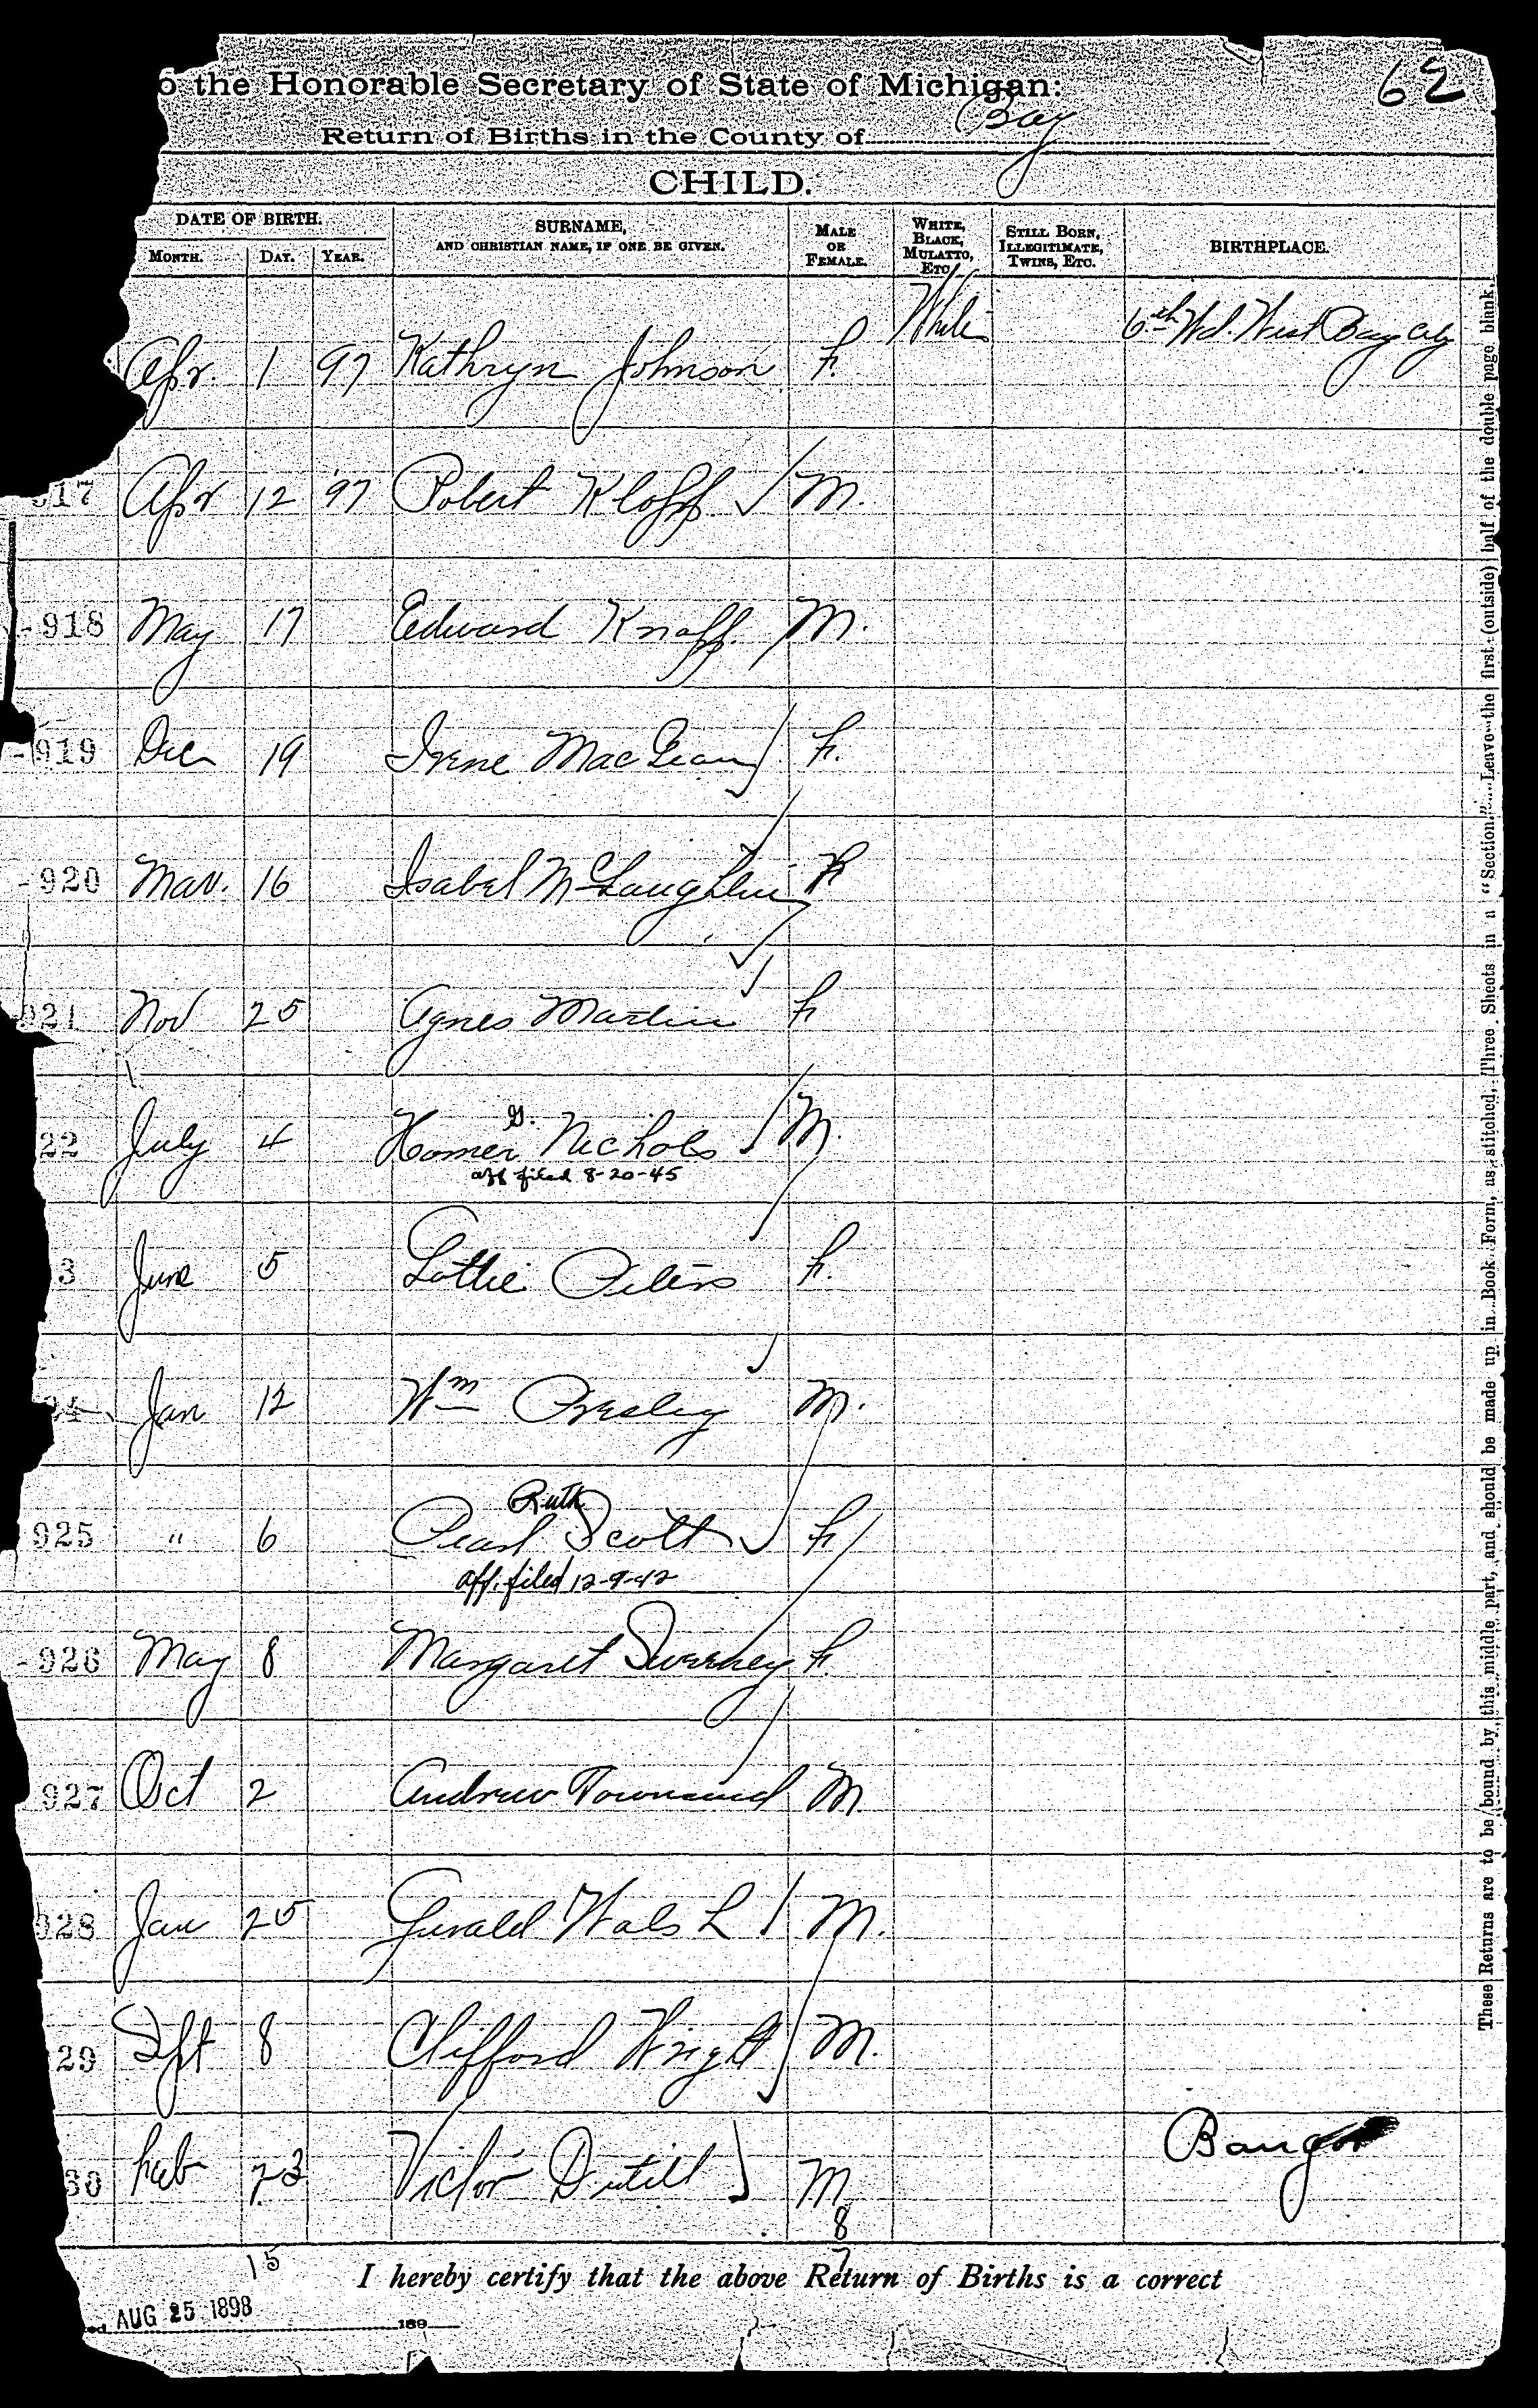 o the Honorable Secretary of State of Michigan: 62
Return of Births in the County of Bay
CHILD.
DATE OF BIRTH.
MONTH. DAY. YEAR.
SURNAME, AND CHRISTIAN NAME, IF ONE BE GIVEN.
MALE OR FEMALE.
WHITE, BLACK, MULATTO, ETC.
STILL BORN, ILLEGITIMATE, TWINS, ETC.
BIRTHPLACE.
Apr. 1 97 Kathryn Johnson F. White 6th Wd. West Bay City
917 Apr 12 '97 Robert Klopp M.
-918 May 17 Edward Knapp M.
-919 Dec 19 Irene MacLean F.
-920 Mar. 16 Isabel McLaughlin F
921 Nov 25 Agnes Martin F
22 July 4 Homer G. Nichols M.
aff filed 8-20-45
3 June 5 Lottie Peters F.
24 Jan 12 Wm Presley M.
925 " 6 Pearl Ruth Scott F
aff. filed 12-9-42
-926 May 8 Margaret Sweeney F.
927 Oct 2 Andrew Townsend M.
928 Jan 25 Gerald Walsh M.
29 Sept 8 Clifford Wright M.
30 Feb 23 Victor Dutill M Bangor
8
15 7
I hereby certify that the above Return of Births is a correct
ed AUG 25 1898 189
These Returns are to be bound by this middle part, and should be made up in Book Form, as stitched, Three Sheets in a "Section." Leave the first (outside) half of the double page blank.